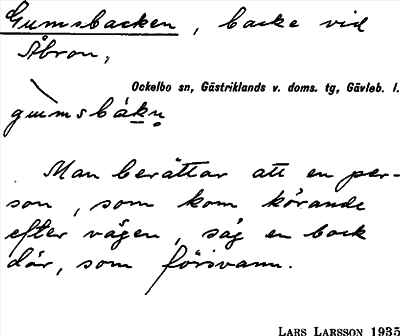 Gumsbacken, backe vid
Åbron,
Ockelbo sn, Gästriklands v. doms. tg, Gävleb. l.
gumsbákn̥
Man berättar att en per-
son, som kom körande
efter vägen, såg en bock
där, som försvann.
LARS LARSSON 1935